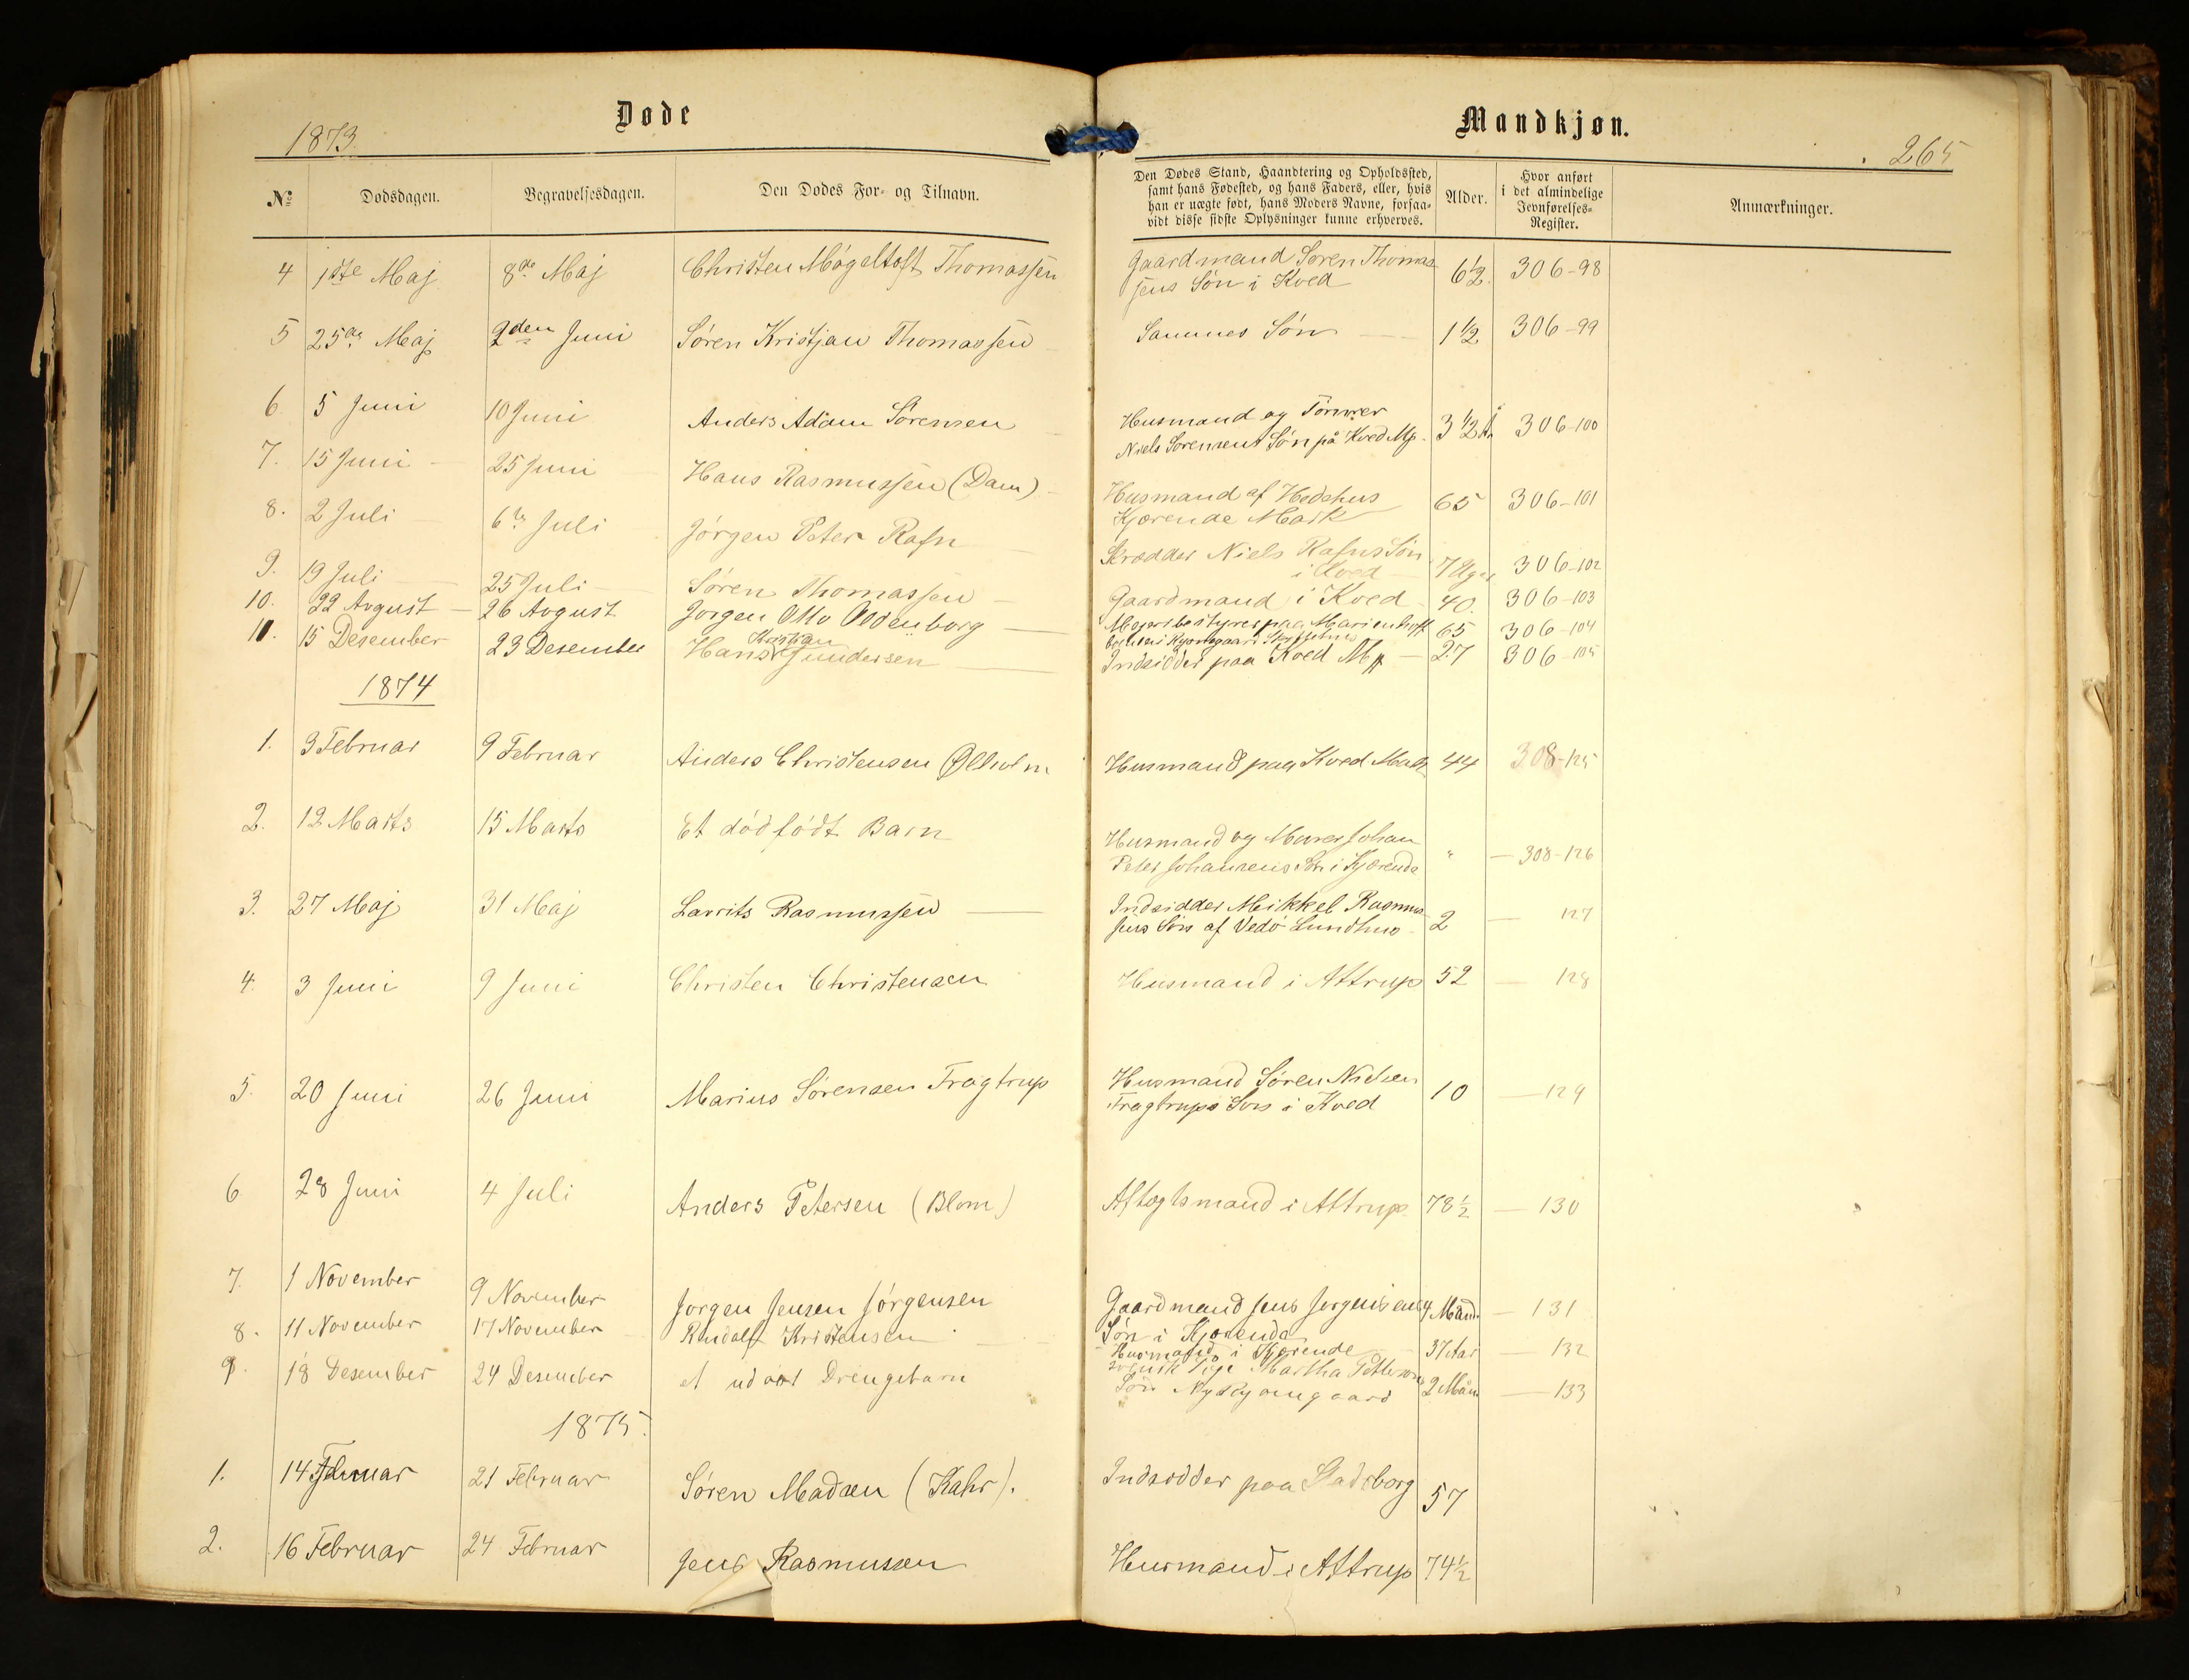 1873.
Døde
Mandkjøn.
265
№
Dødsdagen.
Begravelsesdagen.
Den Dødes For- og Tilnavn.
Den Dødes Stand, Haandtering og Opholdssted,
samt hans Fødested, og hans Faders, eller, hvis
han er uægte født, hans Moders Navne, forsaa-
vidt disse sidste Oplysninger kunne erhverves.
Alder.
Hvor anført
i det almindelige
Jevnførelses-
Register.
Anmærkninger.
4 1ste Maj 8de Maj Christen Mögeltoft Thomassen
Gaardmand Søren Thomas
sens Søn i Koed 6½. 306-98
5 25de Maj 2den Juni Søren Kristjan Thomassen
Sammes Søn 1½ 306-99
6 5 Juni 10 Juni Anders Adam Sørensen
Husmand og Tömrer
Niels Sørensens Søn på Koed M. 3½ 306-100
7. 15 Juni 25 Juni Hans Rasmussen (Dam)
Husmand af Hedehus
Kjærende Mark 65 306-101
8. 2 Juli 6te Juli Jørgen Peter Rafn
Skrædder Niels Rafns Søn
i Koed 7 Uger 306-102
9. 19 Juli 25 Juli Søren Thomassen
Gaardmand i Koed 40. 306-103
10. 22 Avgust 26 Avgust Jørgen Otto Oldenborg
Mejeribestyrer paa Marienhoff 65 306-104
11. 15 Desember 23 Desember Hans Gundersen
Indsidder paa Koed M 27 306-105
1874
1. 3 Februar 9 Februar Anders Christensen Ølholm
Husmand paa Koed Mark 44 308-125
2. 12 Marts 15 Marts Et dödfödt Barn
Husmand og Murer Johan
Peter Johansens Søn i Kjærende " 308-126
3. 27 Maj 31 Maj Lavrits Rasmussen
Indsidder Mikkel Rasmus
sens Søn af Vedö Lundhus 2 127
4. 3 Juni 9 Juni Christen Christensen
Husmand i Attrup 52 128
5. 20 Juni 26 Juni Marius Sørensen Fragtrup
Husmand Søren Nielsen
Fragtrups Søn i Koed 10 129
6 28 Juni 4 Juli Anders Petersen (Blom)
Aftægtsmand i Attrup 78½ 130
7. 1 November 9 November Jørgen Jensen Jørgensen
Gaardmand Jens Jørgensens 4 Maand. 131
Søn i Kjærende
8. 11 November 17 November Rudolf Kristensen
Husmand i Kjærende 37 Aar 132
9. 18 Desember 24 Desember et Drengebarn
svensk Pige Martha
Søn Ny Ryomgaard 2 Maan 133
1875.
1. 14 Februar 21 Februar Søren Madsen (Kahr).
Indsidder paa Stadsborg 57
2. 16 Februar 24 Februar Jens Rasmussen
Husmand i Attrup 74½